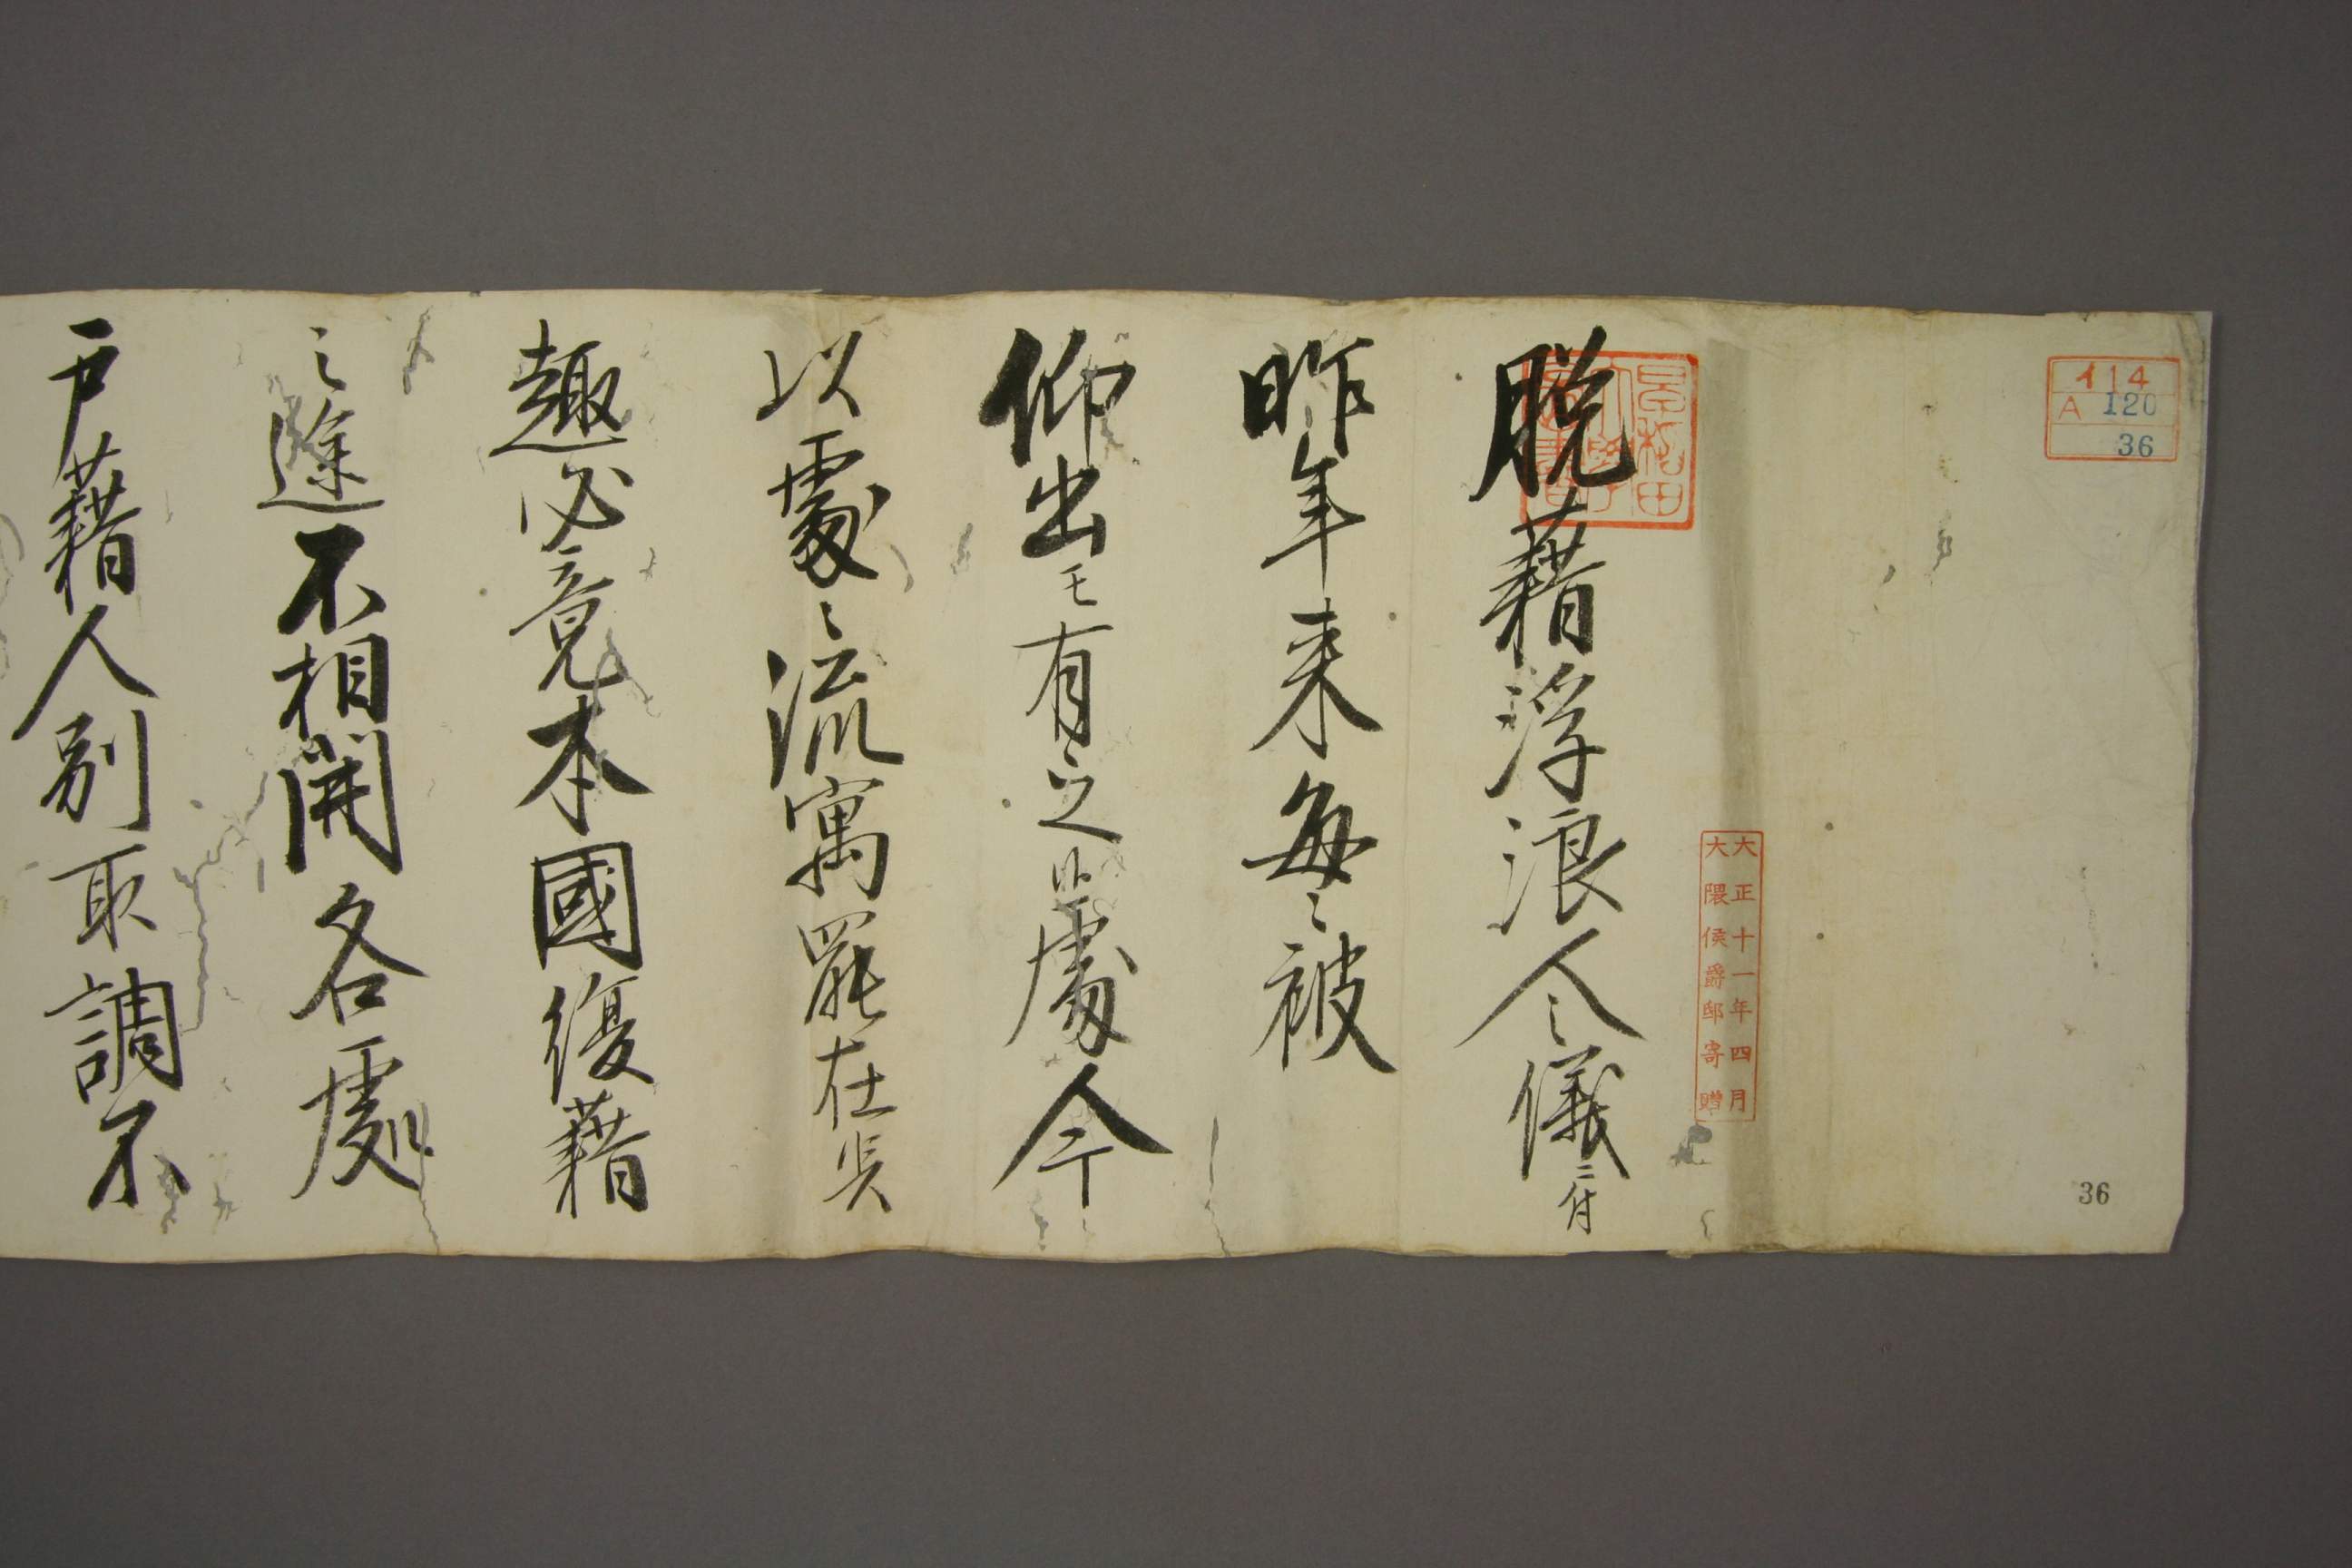 イ14
A 120
36
36
大正十一年四月
大隈侯爵邸寄贈
脱藉浮浪人之儀ニ付
昨年来毎々被
仰出モ有之候處今
以處々流寓罷在候
趣必竟本國復藉
之途不相開各處
戸藉人別取調不